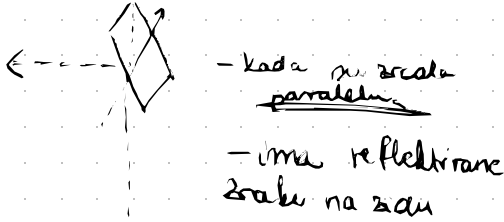 - kada su zrcala
paralelna
- ima reflektirane
zrake na zidu